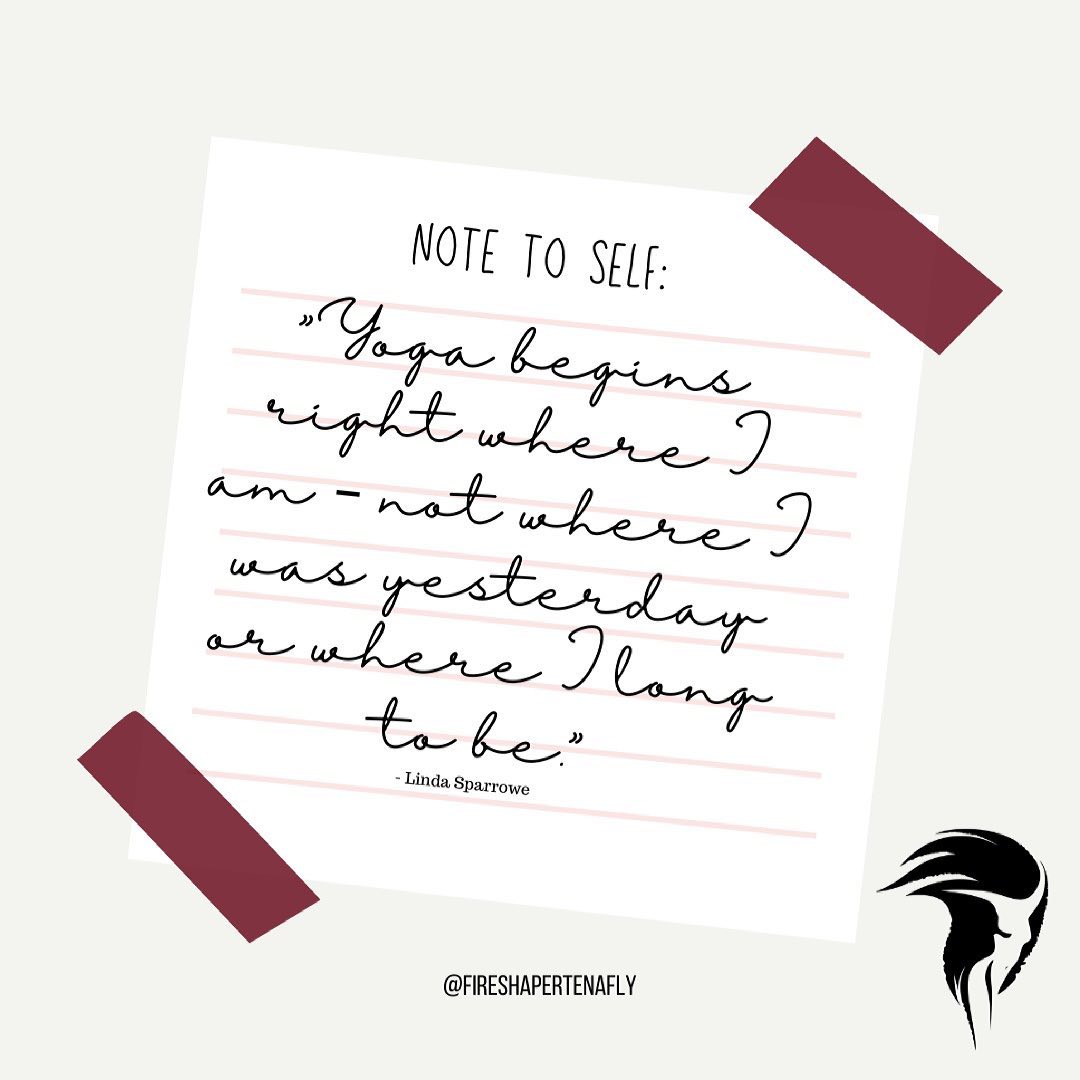 NOTE TO SELF:
”Yoga begins
right where I
am - not where I
was yesterday
or where I long
to be.”
- Linda Sparrowe
@FIRESHAPERTENAFLY